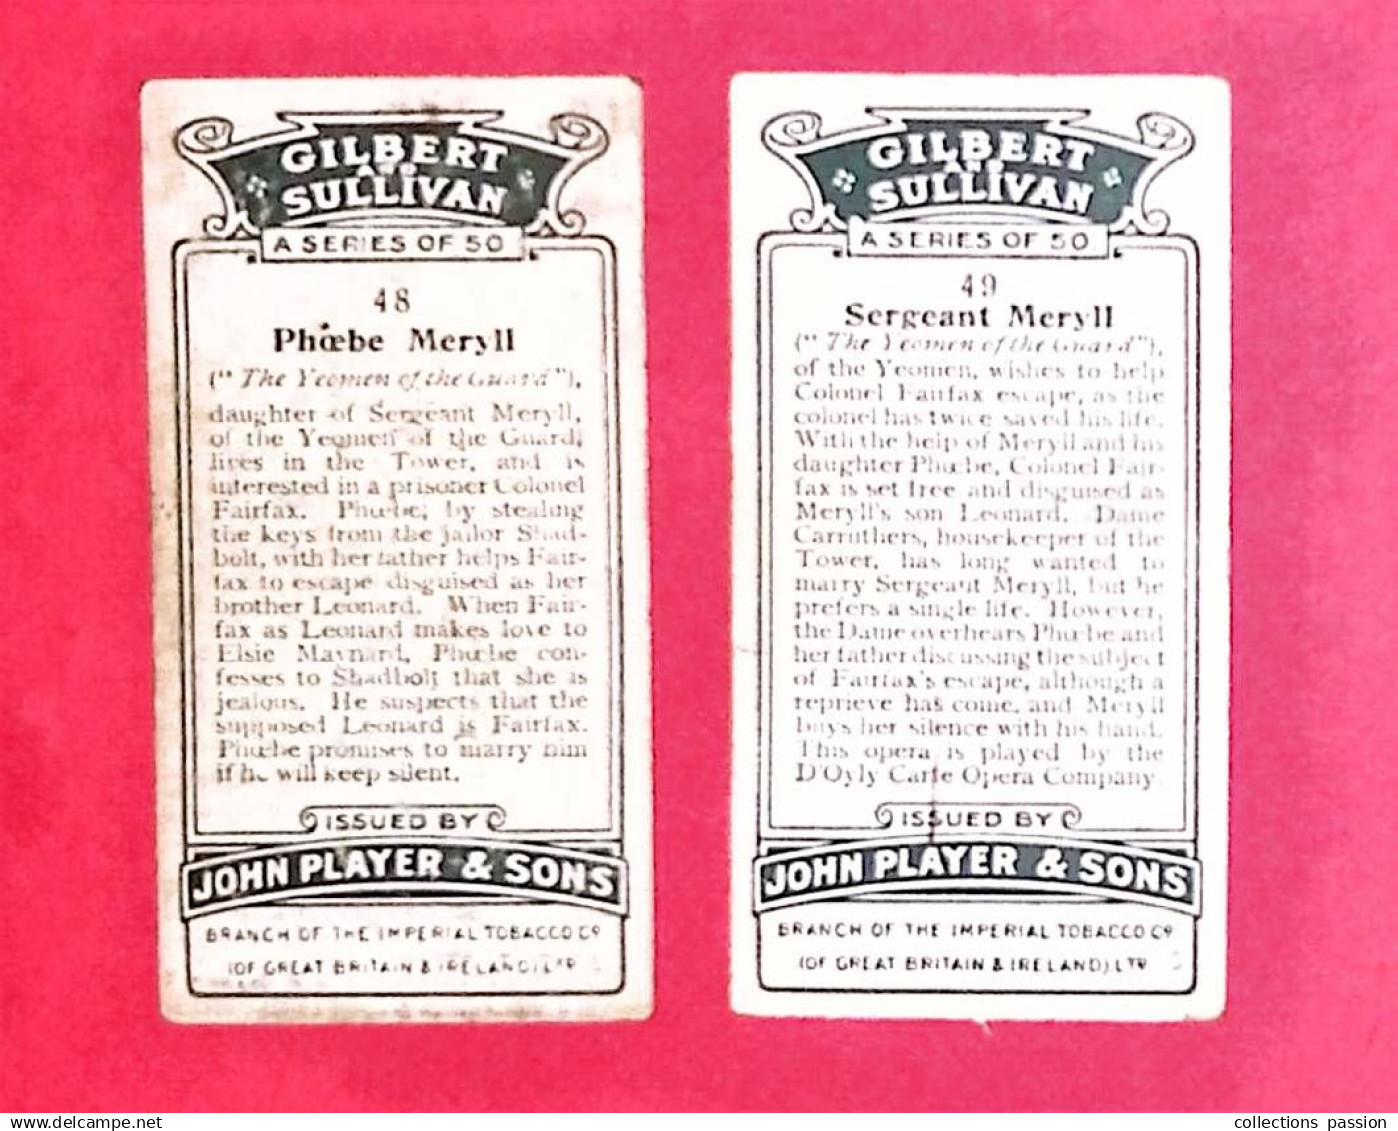 GILBERT
AND
SULLIVAN
A SERIES OF 50
48
Phœbe Meryll
("The Yeomen of the Guard"),
daughter of Sergeant Meryll,
of the Yeomen of the Guard,
lives in the Tower, and is
interested in a prisoner Colonel
Fairfax. Phœbe, by stealing
the keys from the jailor Shad-
bolt, with her father helps Fair-
fax to escape disguised as her
brother Leonard. When Fair-
fax as Leonard makes love to
Elsie Maynard, Phœbe con-
fesses to Shadbolt that she is
jealous. He suspects that the
supposed Leonard is Fairfax.
Phœbe promises to marry him
if he will keep silent.
ISSUED BY
JOHN PLAYER & SONS
BRANCH OF THE IMPERIAL TOBACCO Cº
(OF GREAT BRITAIN & IRELAND) LTD
GILBERT
AND
SULLIVAN
A SERIES OF 50
49
Sergeant Meryll
("The Yeomen of the Guard"),
of the Yeomen, wishes to help
Colonel Fairfax escape, as the
colonel has twice saved his life.
With the help of Meryll and his
daughter Phœbe, Colonel Fair-
fax is set free and disguised as
Meryll's son Leonard. Dame
Carruthers, housekeeper of the
Tower, has long wanted to
marry Sergeant Meryll, but he
prefers a single life. However,
the Dame overhears Phœbe and
her father discussing the subject
of Fairfax's escape, although a
reprieve has come, and Meryll
buys her silence with his hand.
This opera is played by the
D'Oyly Carte Opera Company.
ISSUED BY
JOHN PLAYER & SONS
BRANCH OF THE IMPERIAL TOBACCO Cº
(OF GREAT BRITAIN & IRELAND) LTD
collections passion